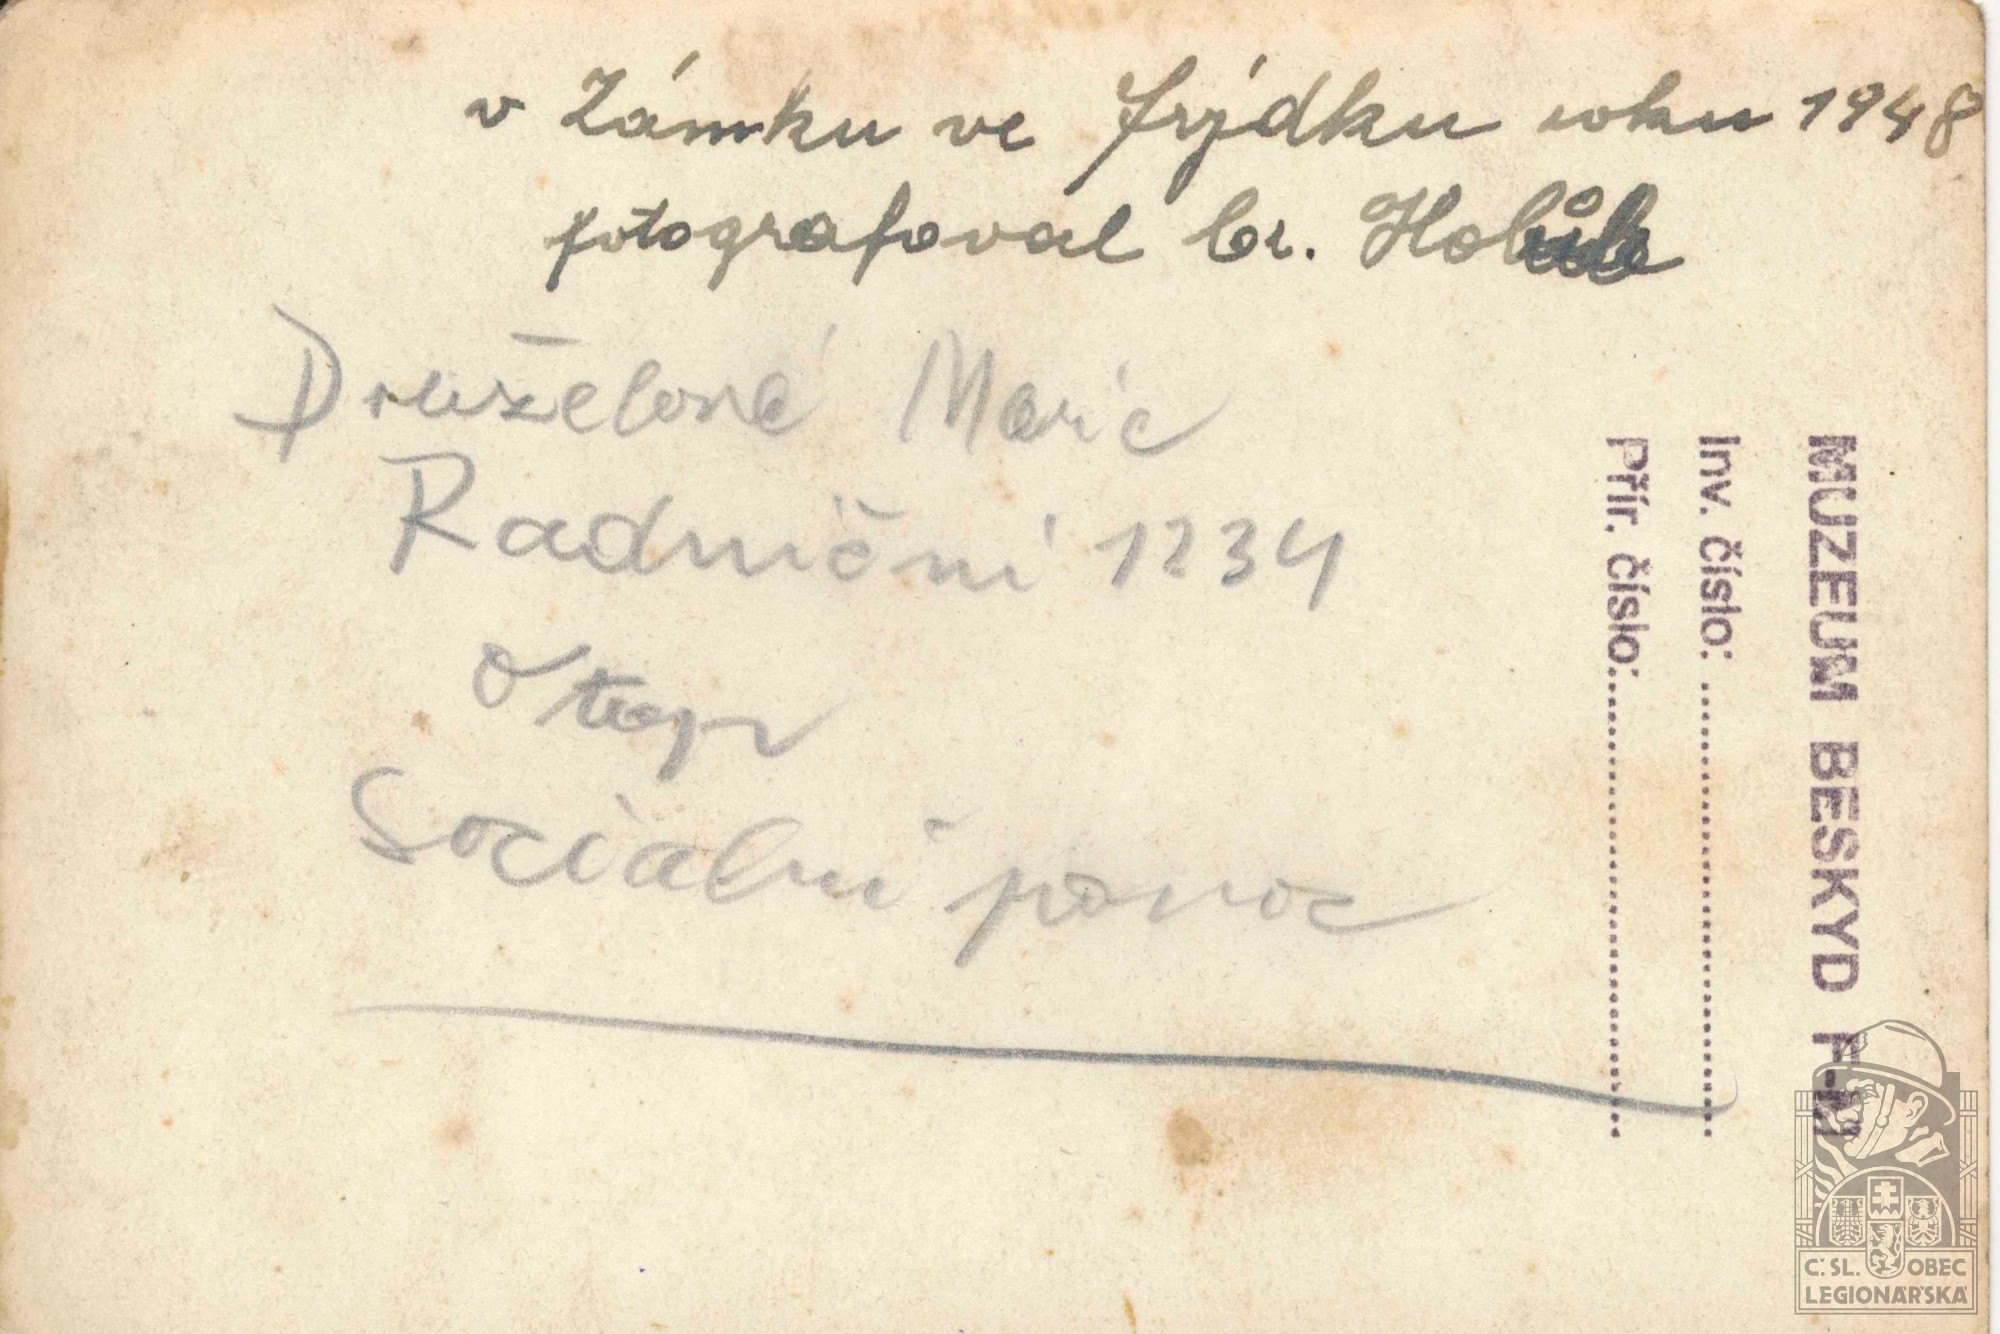 v Zámku ve Frýdku roku 1948
fotografoval br.
Družělová Marie
Radniční 1234
Otop
Sociální pomoc
MUZEUM BESKYD F-M
Inv. číslo:
Přír. číslo:
Č. SL. OBEC
LEGIONÁŘSKÁ